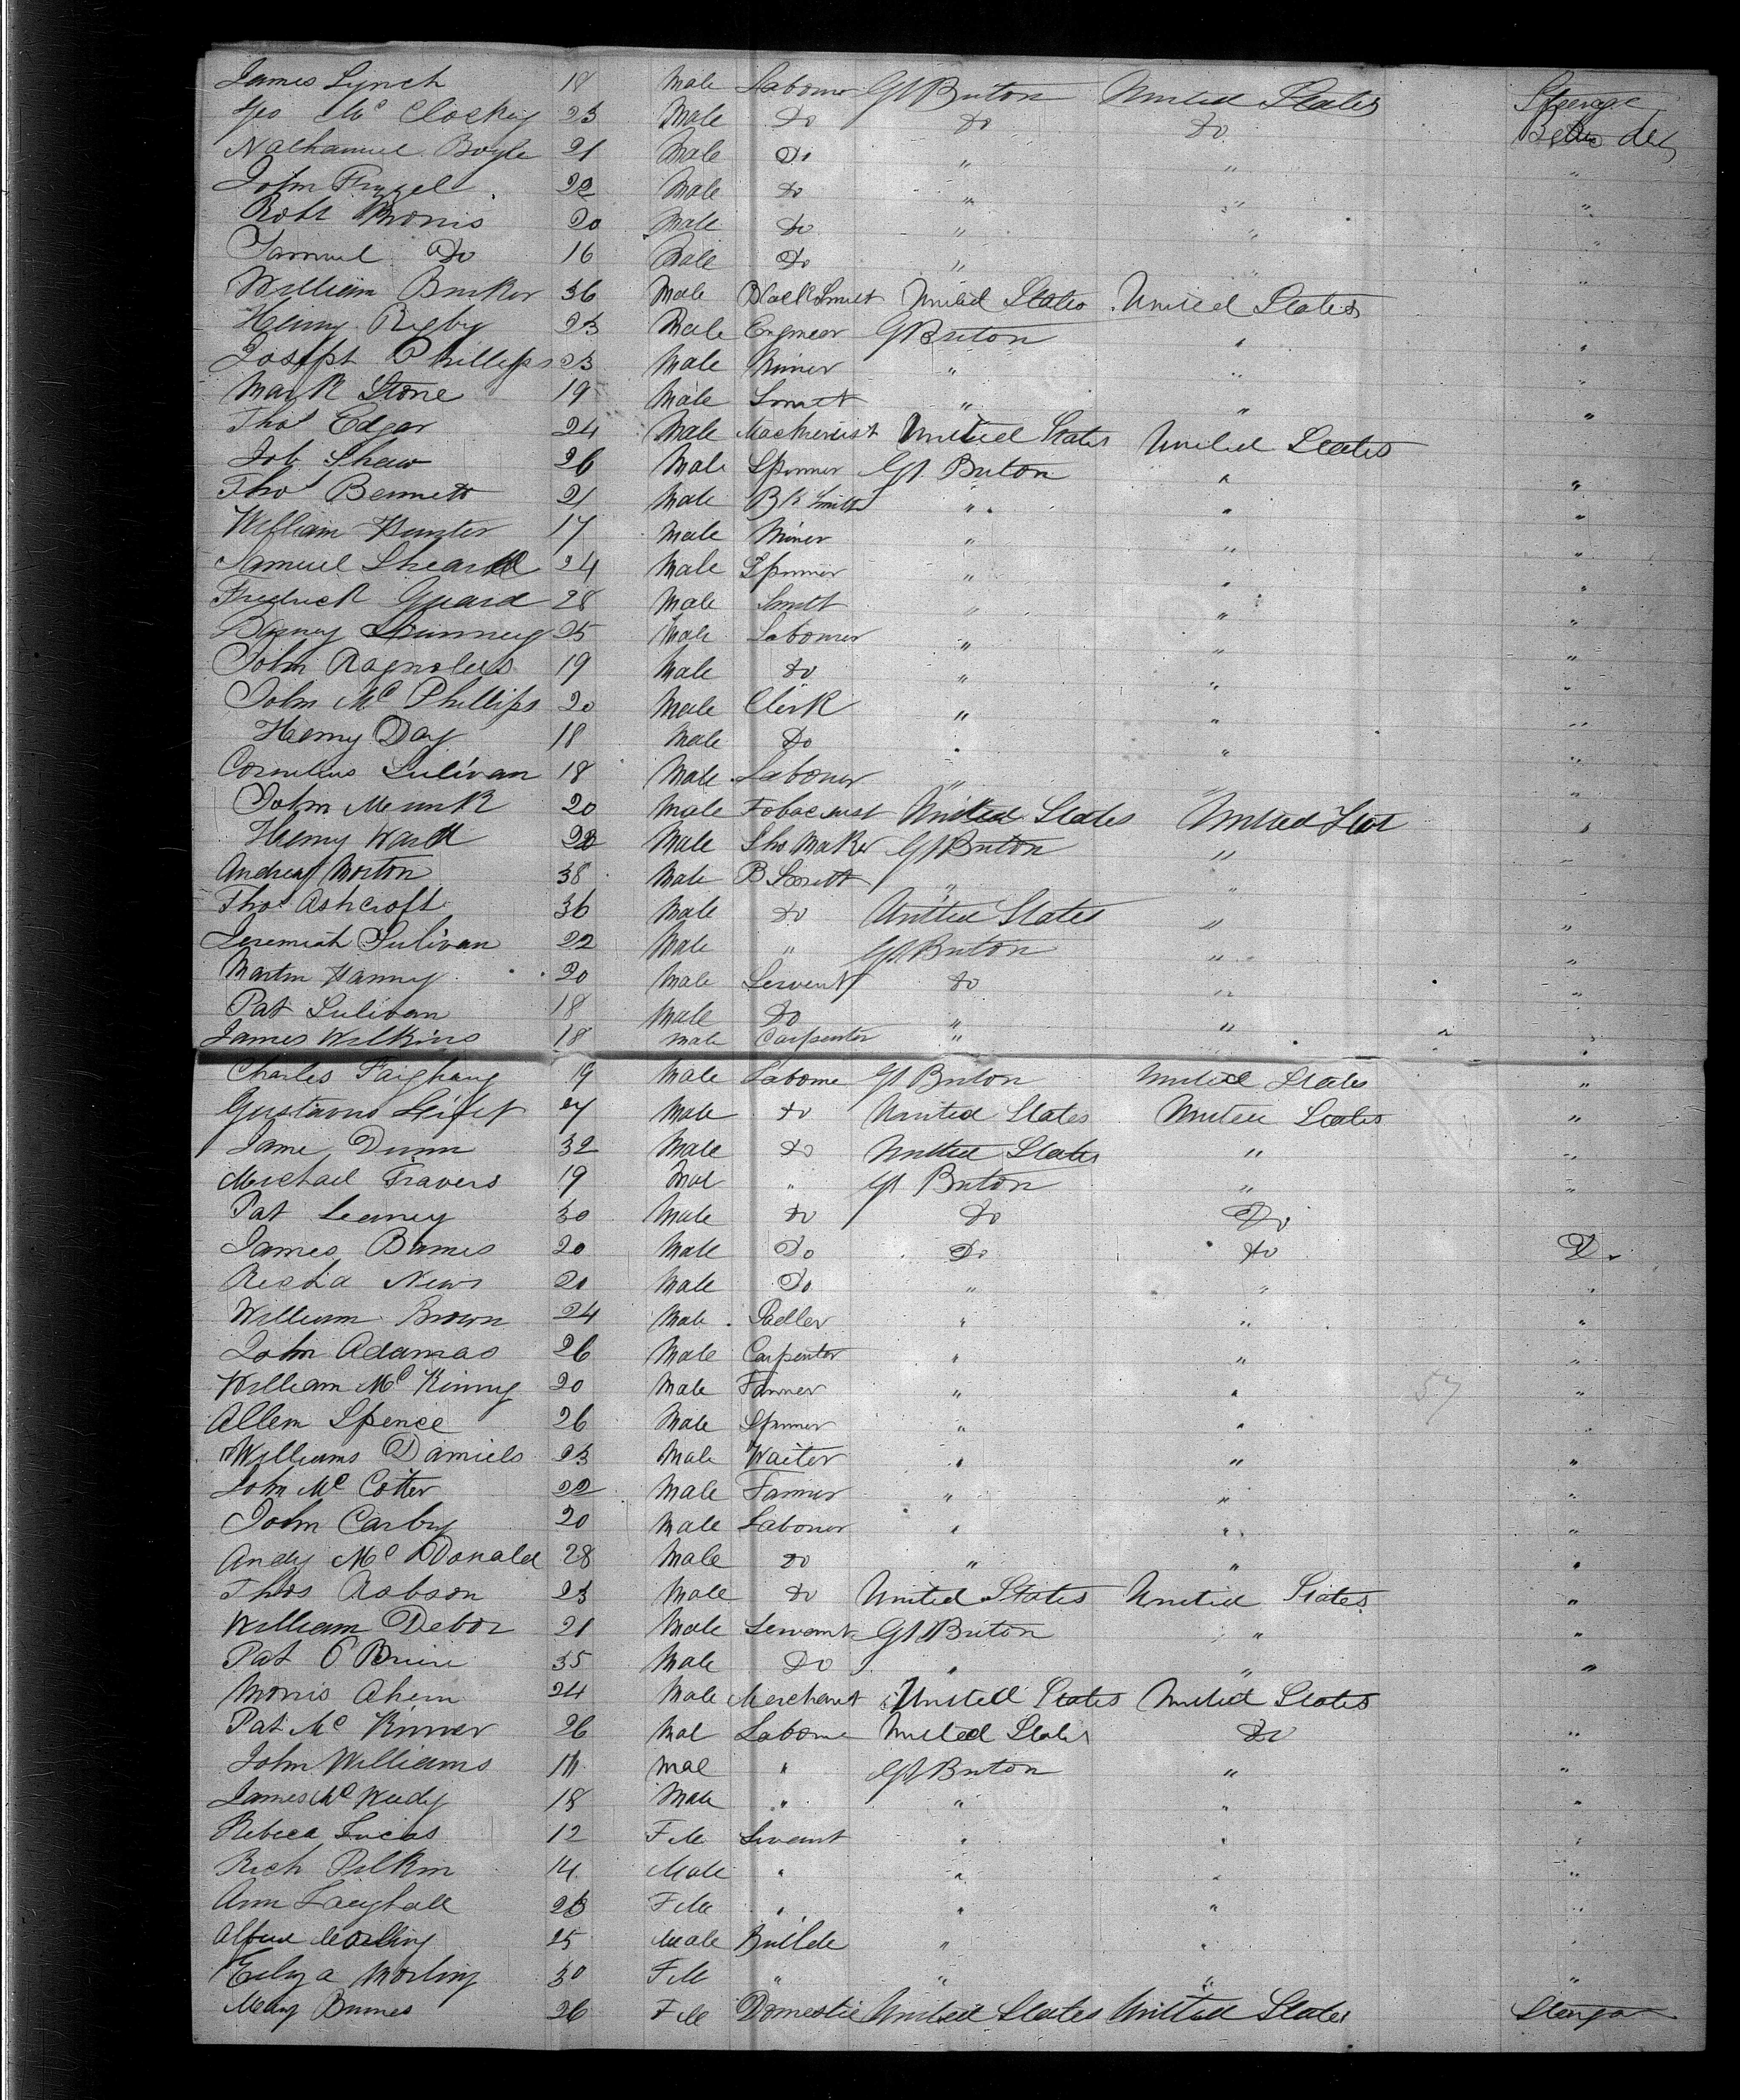 James Lynch 18 Male Labourer Gt Briton United States Steerage
Geo McCloskey 23 Male Do Do Do Betw dec
Nathaniel Boyle 21 Male Do " "
John Frizzel 22 Male Do " " "
Robt Morris 20 Male Do " " "
Samuel Do 16 Male Do " " "
William Bunker 36 Male BlackSmith United States United States "
Henry Rigby 23 Male Engineer Gt Briton " "
Joseph Phillips 23 Male Miner " " "
Mark Stone 19 Male Smith " " "
Thos Edgar 24 Male Machenist United States United States "
Job Shaw 26 Male Spinner Gt Briton " "
Thos Bennett 21 Male Bk Smith " " "
William Hunter 17 Male Miner " " "
Samuel Sheard 24 Male Spinner " " "
Fredrick Guard 28 Male Smith " " "
Barney 25 Male Labourer " " "
John Ragnolds 19 Male Do " " "
John McPhillips 20 Male Clerk " " "
Henry Day 18 Male Do " " "
Cornelius Sulivan 18 Male Labourer " " "
John Meunk 20 Male Tobaccunist United States United Stat "
Henry Ward Male Sho Maker Gt Briton " "
Andrew Morton 38 Male B Smith " " "
Thos Ashcroft 36 Male Do United States " "
Jeremiah Sulivan 22 Male " Gt Briton " "
Martin Hanny 20 Male Servent Do " "
Pat Sulivan 18 Male Do " " "
James Wilkins 18 Male Carpenter " " "
Charles 19 Male Laboure Gt Briton United States "
Gustavus Male Do United States United States "
Jame Dunn 32 Male Do United States " "
Michael Travers 19 Mal " Gt Briton " "
Pat Leaney 30 Male Do Do Do
James Barnes 20 Male Do Do Do Do
Richd News 20 Male Do " " "
William Brown 24 Male Sadler " " "
John Adamas 26 Male Carpenter " " "
William McKinny 20 Male Farmer " " 57 "
Allem Spence 26 Male Spinner " " "
Williams Daniels 23 Male Waiter " " "
John McCotter 22 Male Farmer " " "
John Carby 20 Male Labourer " " "
Andy McDonald 28 Male Do " " "
Thos Robson 23 Male Do United States United States "
William Debor 21 Male Servant Gt Briton " "
Pat O'Brien 35 Male Do " " "
Morris Ahern 24 Male Merchant United States United States
Pat McKinner 26 Mal Laboure United States Do "
John Williams Mal " Gt Briton " "
James McKeedy 18 Male " " " "
Rebeca Lucas 12 F M Servant " " "
Rich Pilkin 14 Male " " " "
Ann 23 F M " " " "
Alfred Morling 25 Male Builde " " "
Eliza Morling 30 F M " " " "
Mary Burnes 26 F M Domestic United States United States Steerga